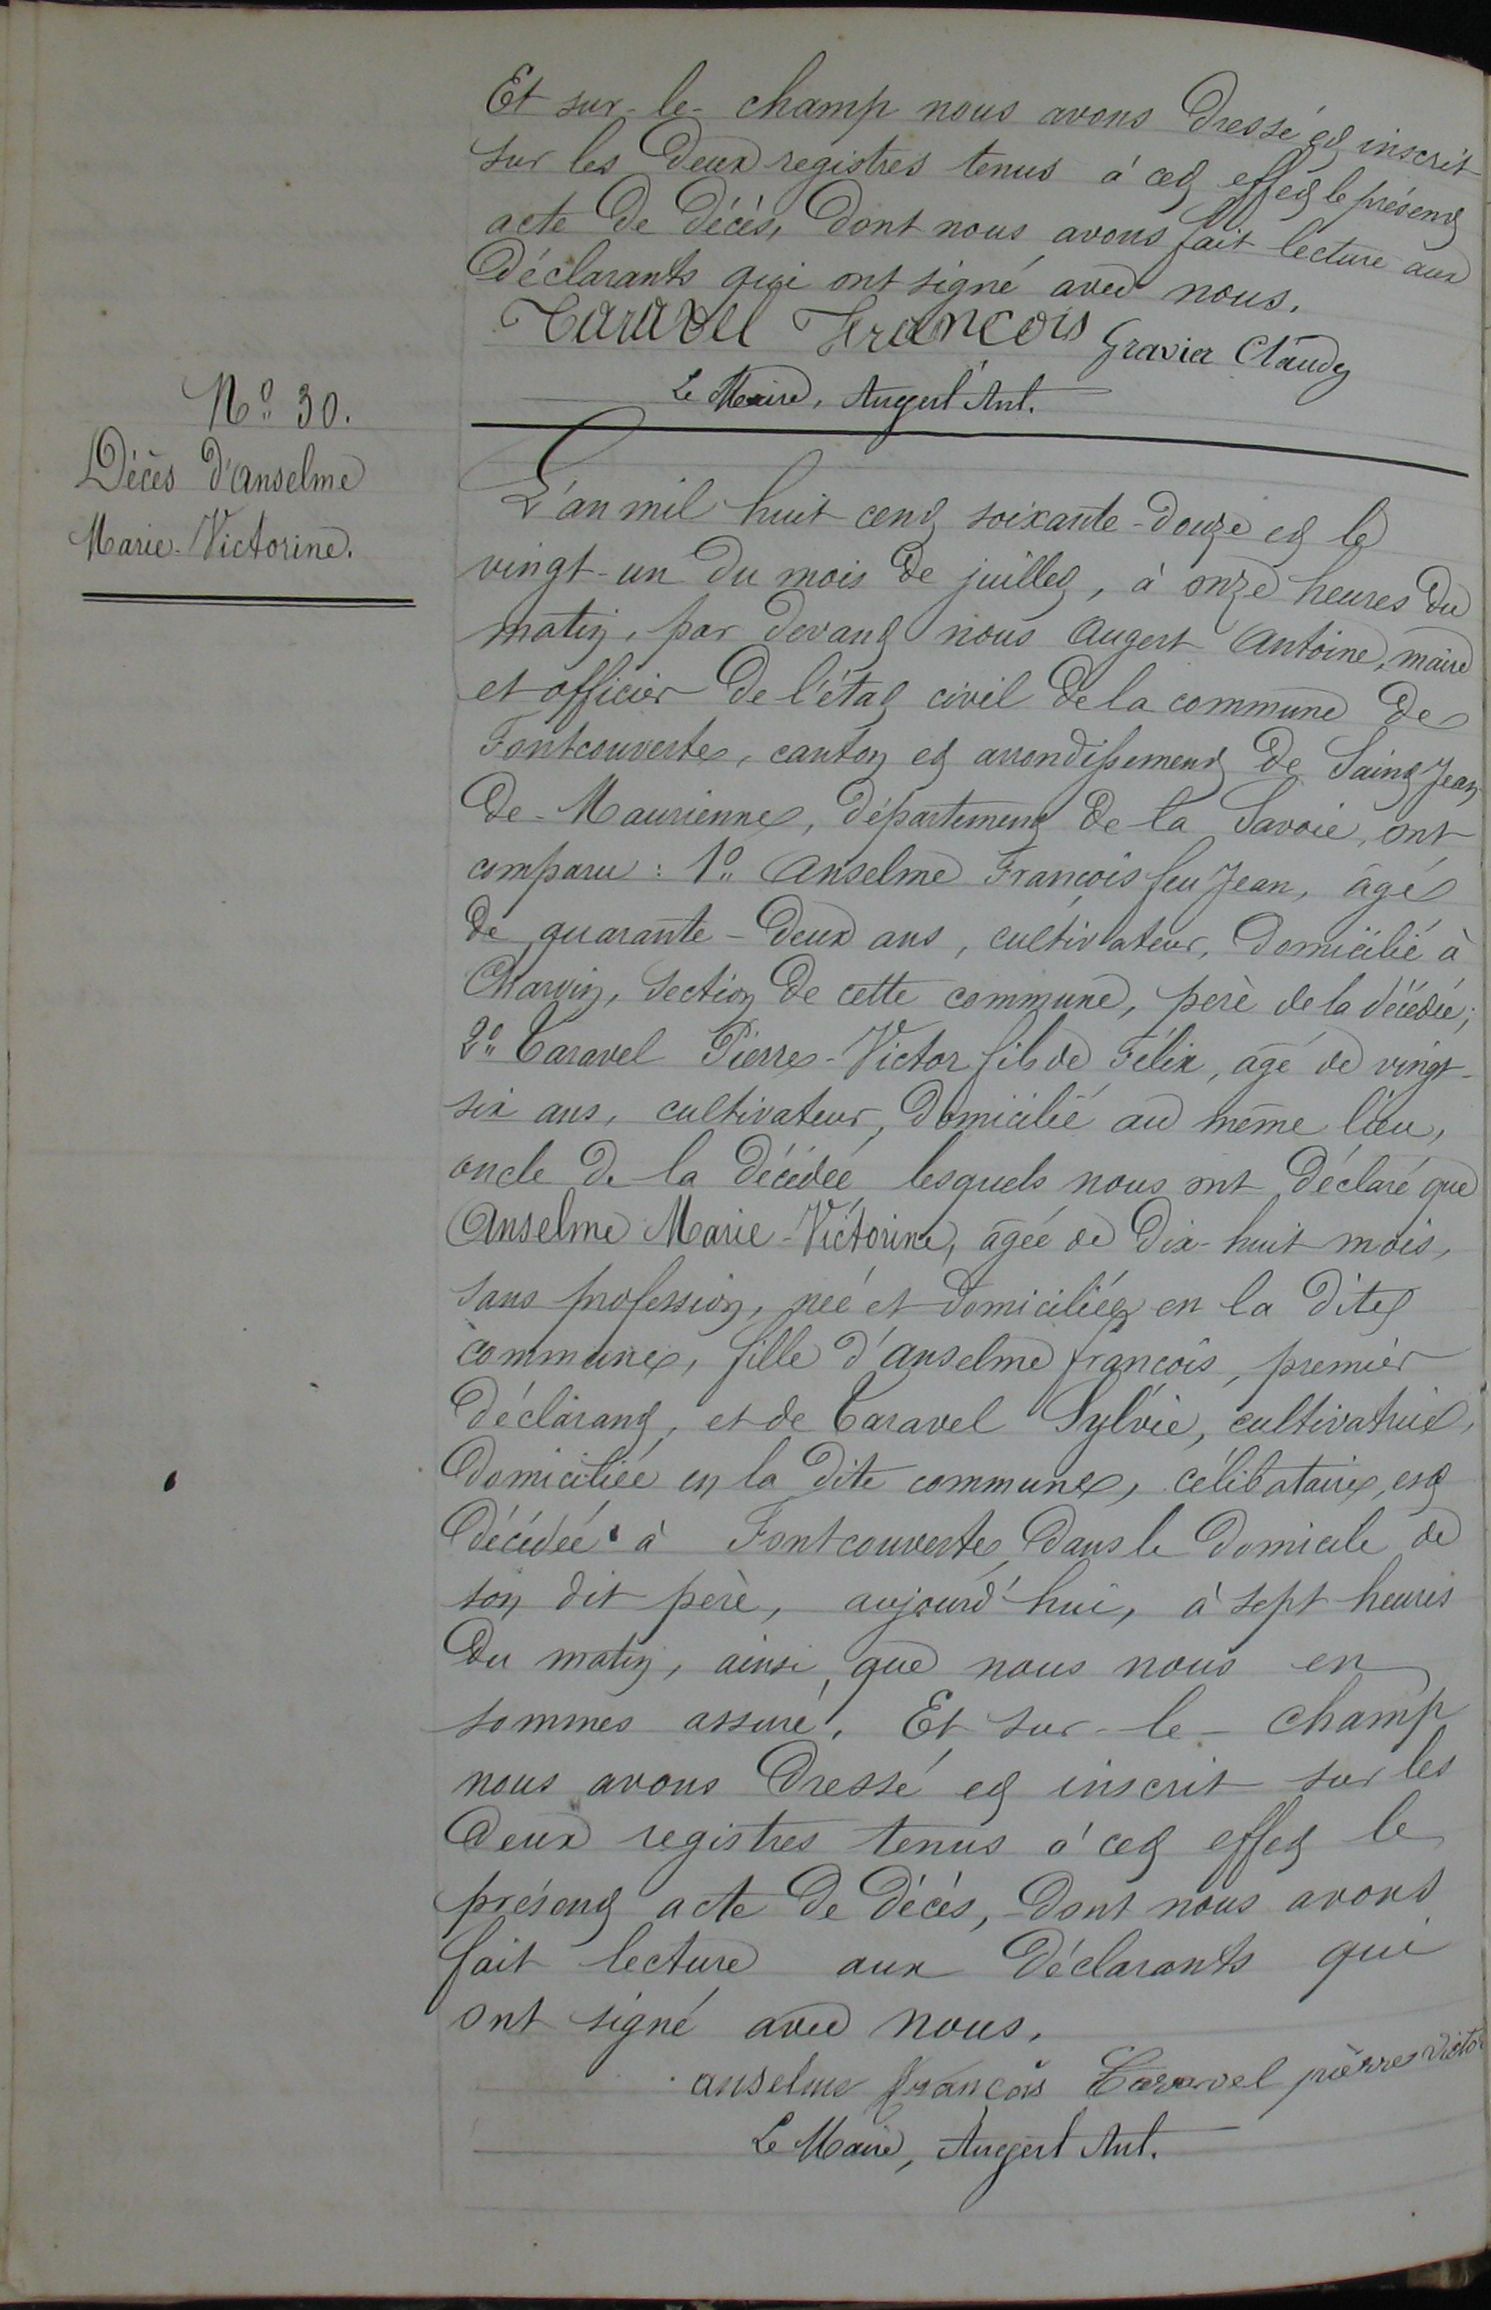 Et sur-le-champ nous avons dressé et inscrit
sur les deux registres tenus à cet effet le présent
acte de décès, dont nous avons fait lecture aux
déclarants qui ont signé avec nous.
Taravel François Gravier Claude
Le Maire, Augert Ant.
N° 30.
Décès d'Anselme
Marie-Victorine.
L'an mil huit cent soixante-douze et le
vingt-un du mois de juillet, à onze heures du
matin, par devant nous Augert Antoine, maire
et officier de l'état civil de la commune de
Fontcouverte, canton et arrondissement de Saint Jean
de-Maurienne, département de la Savoie, ont
comparu : 1° Anselme François feu Jean, âgé
de quarante-deux ans, cultivateur, domicilié à
Charvin, section de cette commune, père de la décédée;
2° Taravel Pierre-Victor fils de Félix, âgé de vingt-
six ans, cultivateur, domicilié au même lieu,
oncle de la décédée lesquels nous ont déclaré que
Anselme Marie-Victorine, âgée de dix-huit mois,
sans profession, née et domiciliée en la dite
commune, fille d'Anselme françois, premier
déclarant, et de Taravel Sylvie, cultivatrice,
domiciliée en la dite commune, célibataire, est
décédée à Fontcouverte dans le domicile de
son dit père, aujourd'hui, à sept heures
du matin, ainsi que nous nous en
sommes assuré. Et sur-le-champ
nous avons dressé et inscrit sur les
deux registres tenus à cet effet le
présent acte de décès, dont nous avons
fait lecture aux déclarants qui
ont signé avec nous.
anselme françois Taravel pierre victor
Le Maire, Augert Ant.